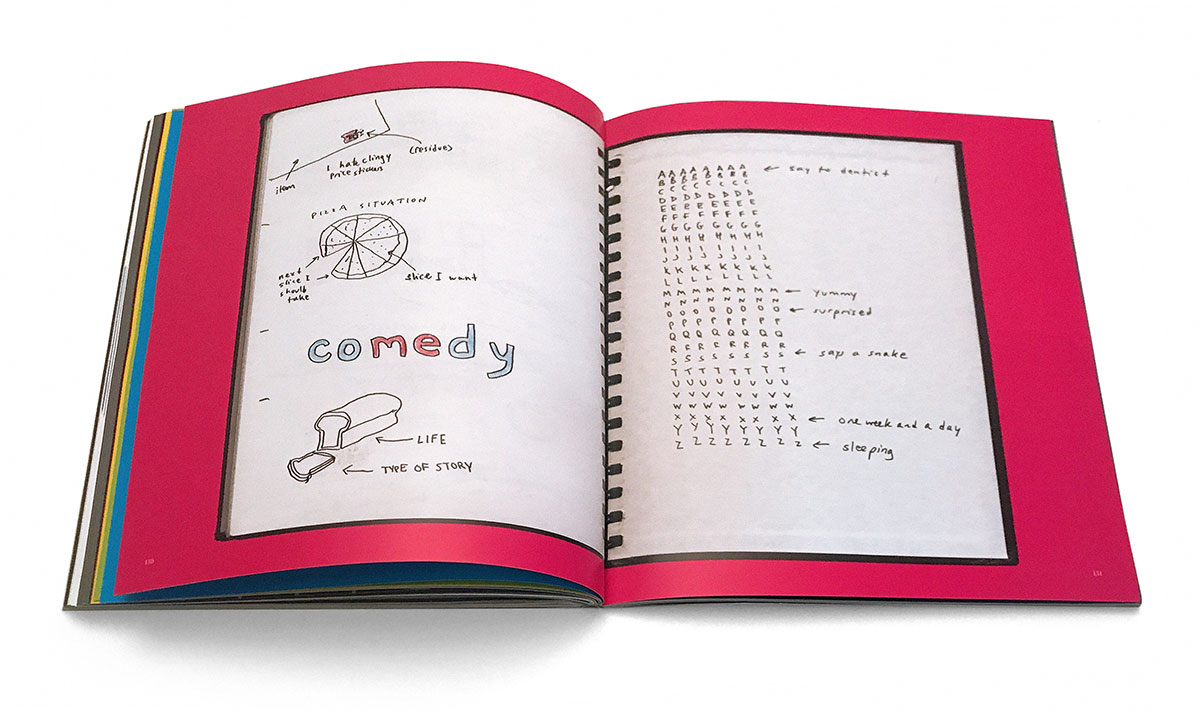 (residue)
I hate clingy
price stickers
item
PIZZA SITUATION
next
slice I
should
take
slice I want
comedy
LIFE
TYPE OF STORY
A A A A A A A A ← say to dentist
B B B B B B B B
C C C C C C C C
D D D D D D D D
E E E E E E E E
F F F F F F F F
G G G G G G G G
H H H H H H H H
I I I I I I I I
J J J J J J J J
K K K K K K K K
L L L L L L L L
M M M M M M M M ← yummy
N N N N N N N N
O O O O O O O O ← surprised
P P P P P P P P
Q Q Q Q Q Q Q Q
R R R R R R R R
S S S S S S S S ← says a snake
T T T T T T T T
U U U U U U U U
V V V V V V V V
W W W W W W W W
X X X X X X X X ← one week and a day
Y Y Y Y Y Y Y Y
Z Z Z Z Z Z Z Z ← sleeping